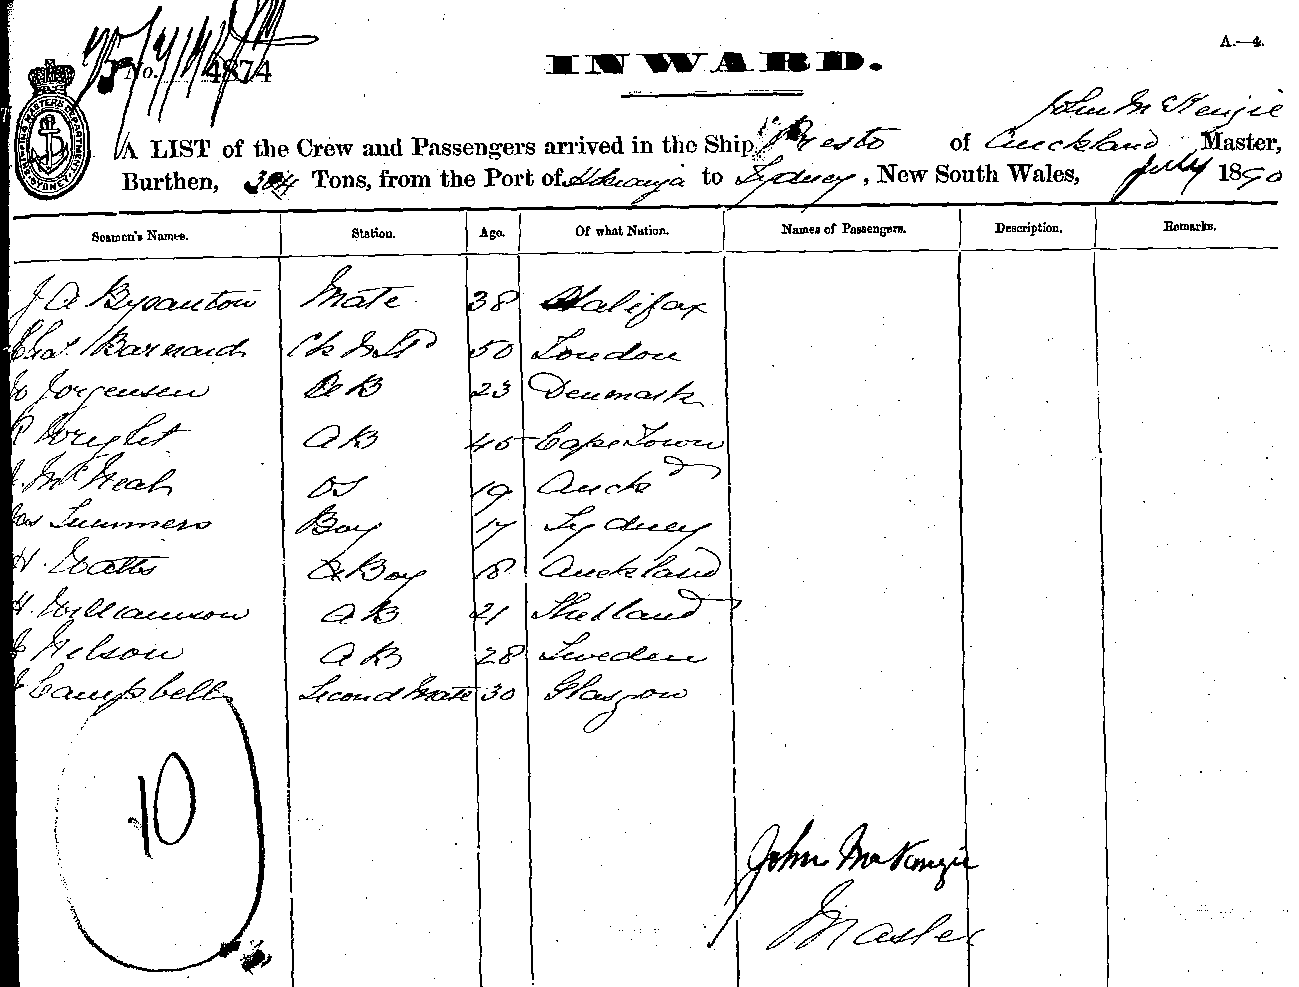 A.—4.
No. 4874
INWARD.
John McKenzie
A LIST of the Crew and Passengers arrived in the Ship Presto of Auckland Master,
Burthen, Tons, from the Port of to Sydney, New South Wales, July 1890
Seamen's Names. Station. Age. Of what Nation. Names of Passengers. Description. Remarks.
J A Bysantou Mate 38 Halifax
Chas. Barnard 50 London
Jorgensen AB 23 Denmark
R Wright AB 45 Cape Town
McNeah OS 19 Auckd
Jas Summers Boy 17 Sydney
H. Watts Boy 18 Auckland
H. Williamson AB 21 Shetland
Nelson AB 28 Sweden
Campbell Second Mate 30 Glasgow
10
John McKenzie
Master